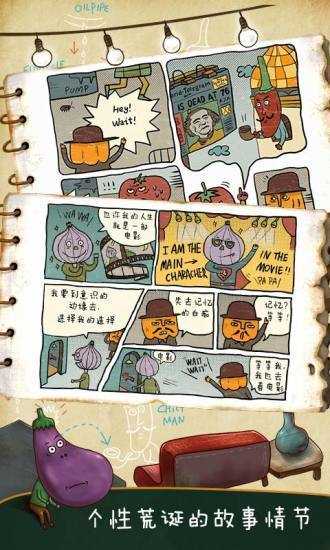 OILPIPE
PUMP
Hey!
Wait!
IS DEAD AT 76
WAWA!
也许我的人生
就是一部
电影
I AM THE
MAIN →
CHARACHER
IN THE
MOVIE!!
PAPA!
我要到意识的
边缘去,
选择我的选择
失去记忆
的白痴
记忆?
等等
电影
WAIT,
WAIT!
等等我,
我也去
看电影
CHILI
MAN
个性荒诞的故事情节